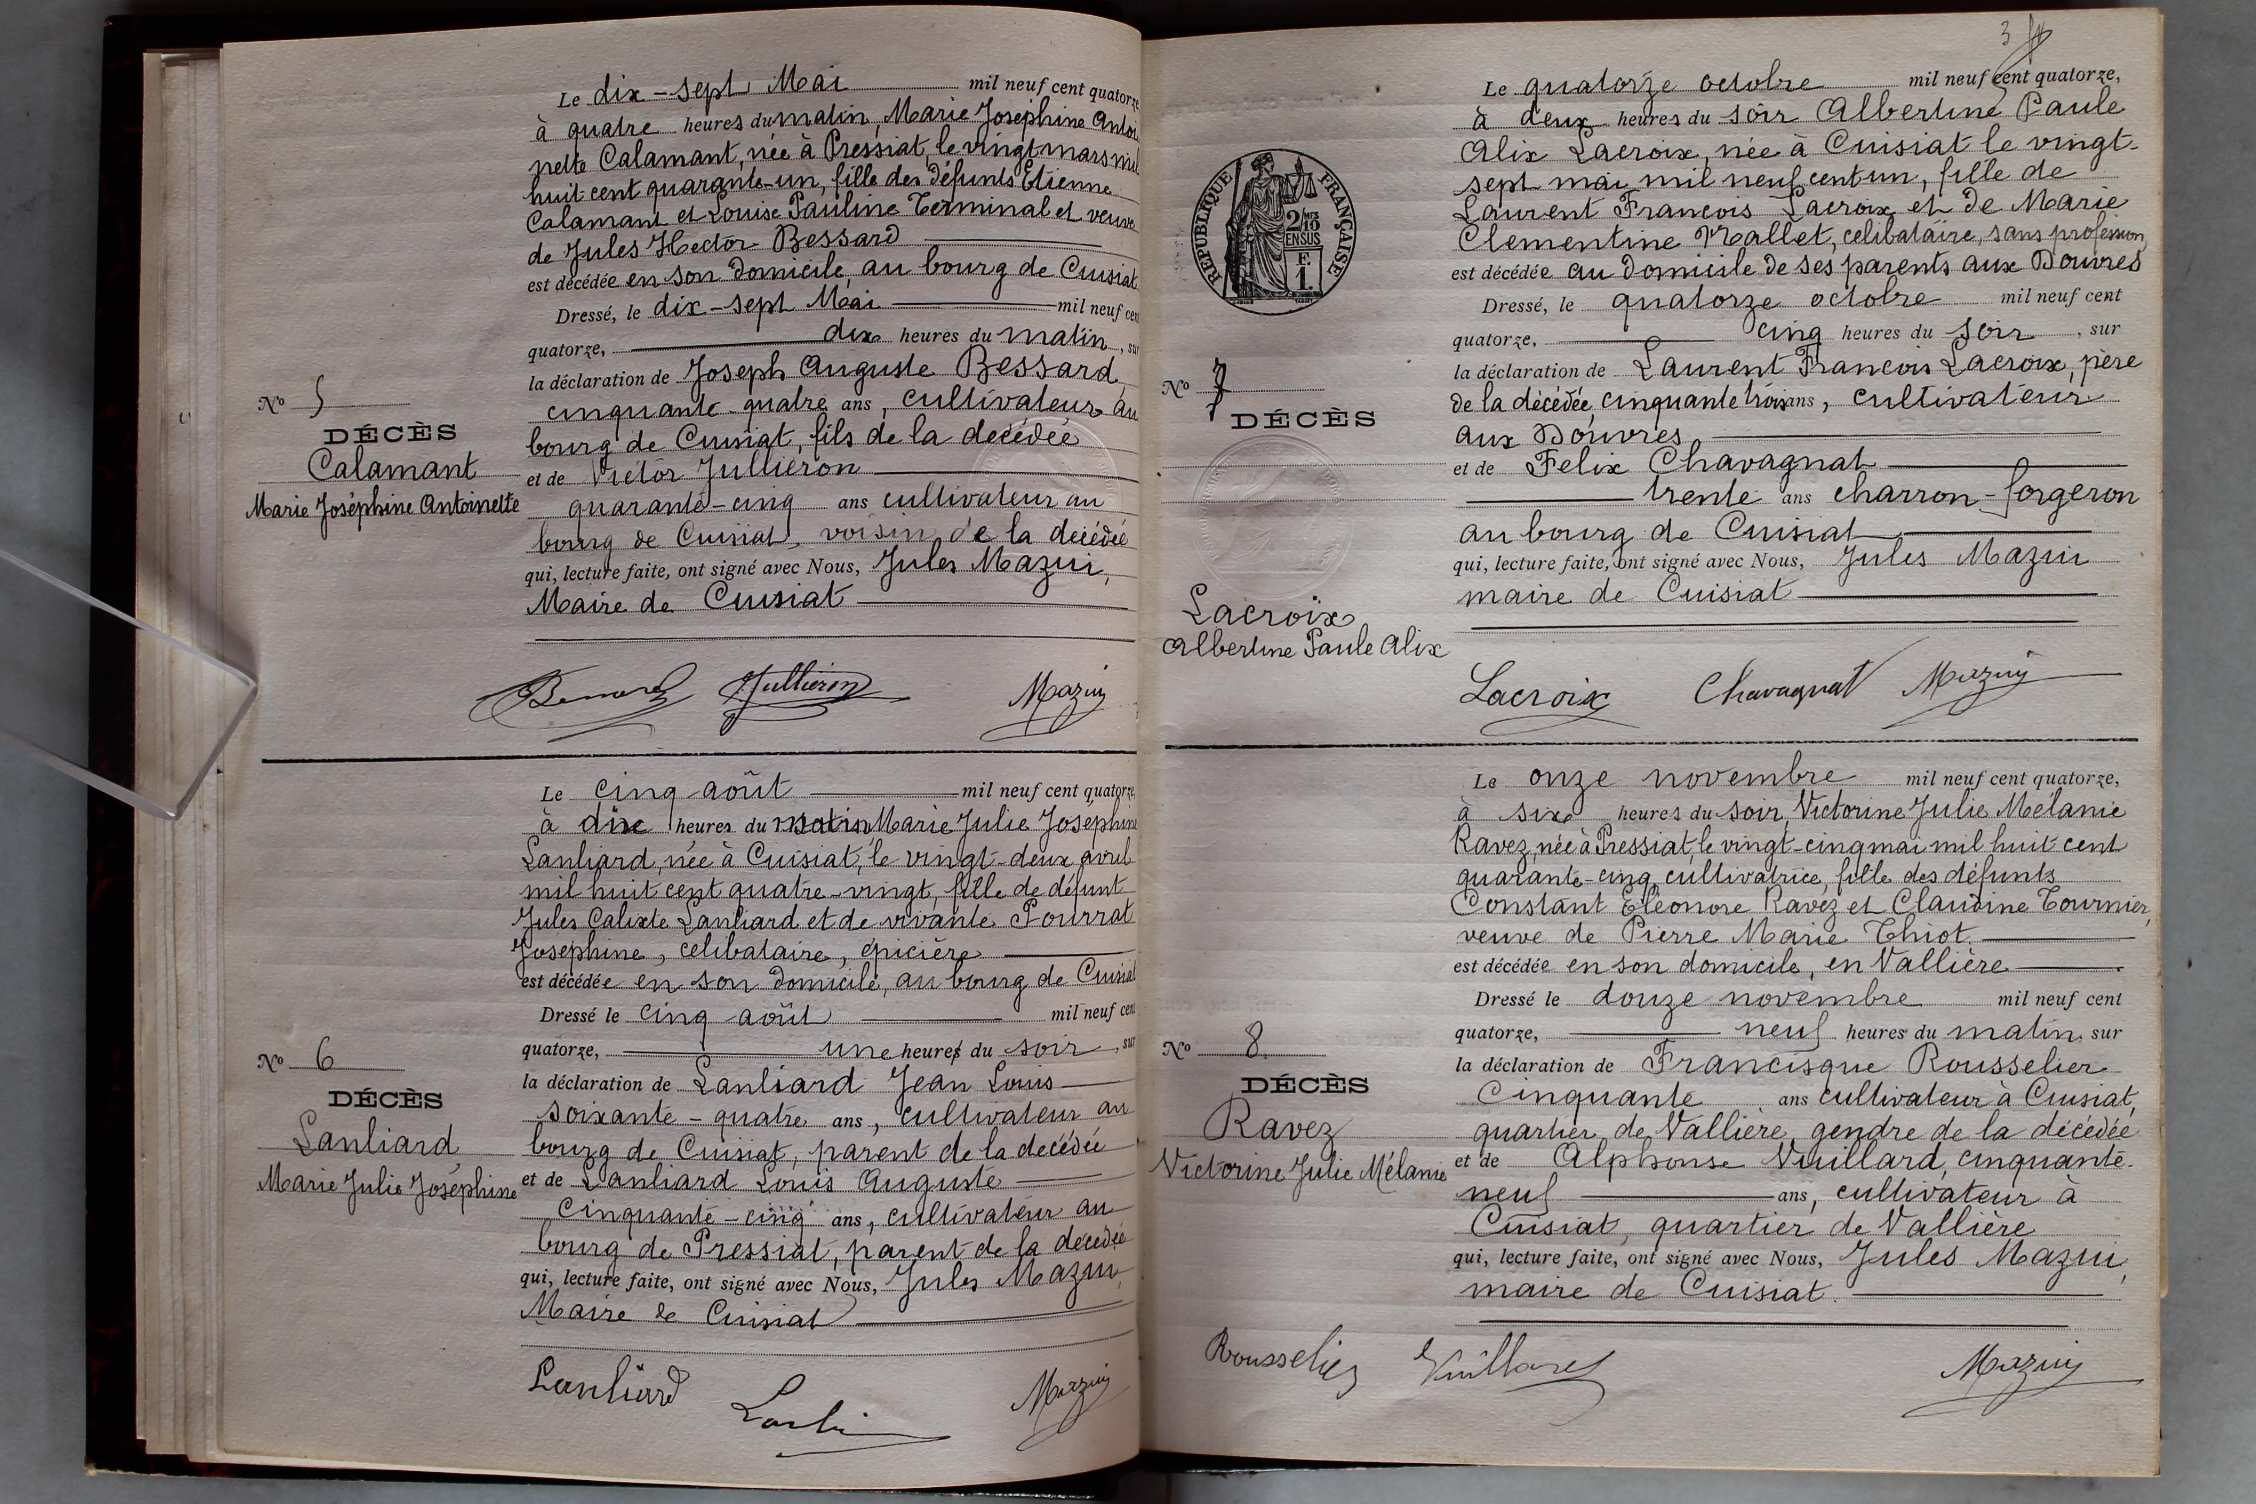 Le dix-sept Mai mil neuf cent quatorze
à quatre heures du matin, Marie Joséphine Antoi
nette Calamant, née à Pressiat, le vingt mars mil
huit cent quarante-un, fille des défunts Etienne
Calamant et Louise Pauline Terminal et veuve
de Jules Hector Bessard
est décédée en son domicile, au bourg de Cuisiat
Dressé, le dix-sept Mai mil neuf cent
quatorze, dix heures du matin, sur
la déclaration de Joseph Auguste Bessard,
cinquante-quatre ans, cultivateur au
bourg de Cuisiat, fils de la décédée
et de Victor Jullieron
quarante-cinq ans cultivateur au
bourg de Cuisiat, voisin de la décédée
qui, lecture faite, ont signé avec Nous, Jules Mazui,
Maire de Cuisiat
No 5
DÉCÈS
Calamant
Marie Joséphine Antoinette
Jullieron Mazuy
Le cinq août mil neuf cent quatorze,
à dix heures du matin Marie Julie Joséphine
Lanliard, née à Cuisiat, le vingt-deux avril
mil huit cent quatre-vingt, fille de défunt
Jules Calixte Lanliard et de vivante Pourrat
Josephine, celibataire, épicière
est décédée en son domicile, au bourg de Cuisiat
Dressé le cinq août mil neuf cent
quatorze, une heures du soir, sur
la déclaration de Lanliard Jean Louis
soixante-quatre ans, cultivateur au
bourg de Cuisiat, parent de la décédée
et de Lanliard Louis Auguste
cinquante-cinq ans, cultivateur au
bourg de Pressiat, parent de la décédée
qui, lecture faite, ont signé avec Nous, Jules Mazui,
Maire de Cuisiat
No 6
DÉCÈS
Lanliard
Marie Julie Joséphine
Lanliard Mazuy
3
Le quatorze octobre mil neuf cent quatorze,
à deux heures du soir Albertine Paule
Alix Lacroix, née à Cuisiat le vingt-
sept mai mil neuf cent un, fille de
Laurent François Lacroix et de Marie
Clementine Mallet, celibataire, sans profession,
est décédée au domicile de ses parents aux Douvres
Dressé, le quatorze octobre mil neuf cent
quatorze, cinq heures du soir, sur
la déclaration de Laurent François Lacroix, père
de la décédée, cinquante trois ans, cultivateur
aux Douvres
et de Felix Chavagnat
trente ans charron-forgeron
au bourg de Cuisiat
qui, lecture faite, ont signé avec Nous, Jules Mazui
maire de Cuisiat
RÉPUBLIQUE FRANÇAISE
2/10
EN SUS
F.
1.
No 7
DÉCÈS
Lacroix
Albertine Paule Alix
Lacroix Chavagnat Mazuy
Le onze novembre mil neuf cent quatorze,
à six heures du soir, Victorine Julie Mélanie
Ravez, née à Pressiat, le vingt-cinq mai mil huit cent
quarante-cinq, cultivatrice, fille des défunts
Constant Eléonore Ravez et Claudine Tournier,
veuve de Pierre Marie Thiot.
est décédée en son domicile, en Vallière.
Dressé le douze novembre mil neuf cent
quatorze, neuf heures du matin, sur
la déclaration de Francisque Rousselier
Cinquante ans cultivateur à Cuisiat,
quartier de Vallière, gendre de la décédée
et de Alphonse Vuillard, cinquante-
neuf ans, cultivateur à
Cuisiat, quartier de Vallière
qui, lecture faite, ont signé avec Nous, Jules Mazui,
maire de Cuisiat.
No 8.
DÉCÈS
Ravez
Victorine Julie Mélanie
Rousselier Vuillard Mazuy